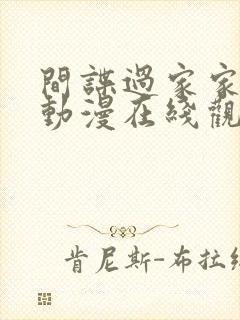 間諜過家家
動漫在綫觀
肯尼斯-布拉